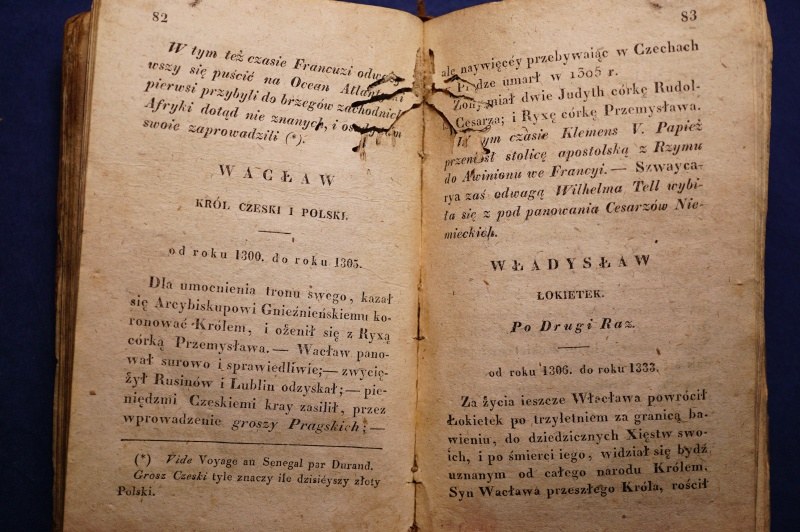 82
W tym też czasie Francuzi odwa
wszy się puścić na Ocean Atlan
pierwsi przybyli do brzegów zachodnich
Afryki dotąd nie znanych, i osady
swoie zaprowadzili (*).
WACŁAW
KRÓL CZESKI I POLSKI.
od roku 1300. do roku 1305.
Dla umocnienia tronu swego, kazał
się Arcybiskupowi Gnieźnieńskiemu ko-
ronować Królem, i ożenił się z Ryxą
córką Przemysława. — Wacław pano-
wał surowo i sprawiedliwie; — zwycię-
żył Rusinów i Lublin odzyskał; — pie-
niędzmi Czeskiemi kray zasilił, przez
wprowadzenie groszy Pragskich; —
(*) Vide Voyage au Senegal par Durand.
Grosz Czeski tyle znaczy ile dzisiéyszy złoty
Polski.
83
ale naywięcéy przebywaiąc w Czechach
w Pradze umarł w 1305 r.
Żon miał dwie Judyth córkę Rudol-
Cesarza; i Ryxę córkę Przemysława.
tym czasie Klemens V. Papież
przeniósł stolicę apostolską z Rzymu
do Awinionu we Francyi. — Szwayca-
rya zaś odwagą Wilhelma Tell wybi-
ła się z pod panowania Cesarzów Nie-
mieckich.
WŁADYSŁAW
ŁOKIETEK.
Po Drugi Raz.
od roku 1306. do roku 1333.
Za życia ieszcze Włacława powrócił
Łokietek po trzyletniem za granicą ba-
wieniu, do dziedzicznych Xięstw swo-
ich, i po śmierci iego, widział się bydź
uznanym od całego narodu Królem.
Syn Wacława przeszłego Króla, rościł